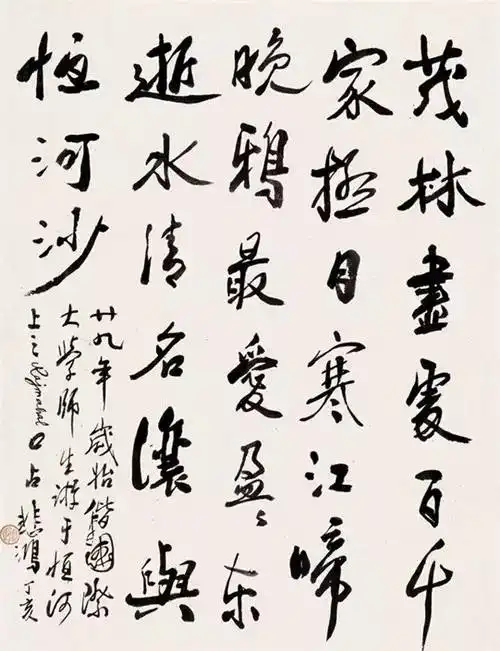 茂林盡處百千
家極目寒江啼
晚鴉最愛盈〻東
逝水清名讓與
恆河沙
廿九年歲始偕國際
大學師生游于恆河
上之Rajmahal口占 悲鴻 丁亥